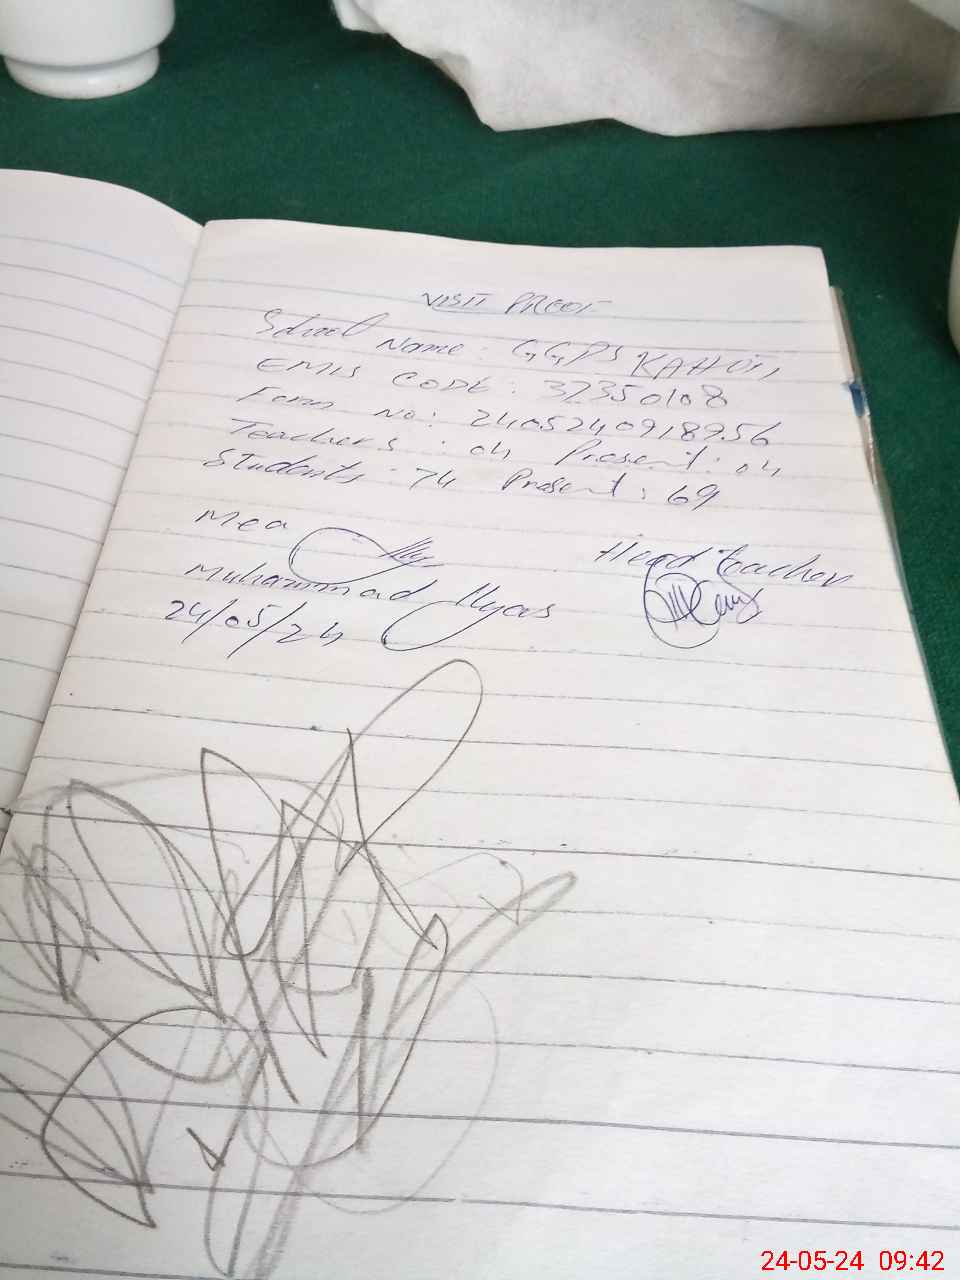 VISIT PROOF
School Name: GGPS KAHOTI
EMIS CODE: 32350108
Form No: 2405240918956
Teachers: 04 Present: 04
Students: 74 Present: 69
Mea Head teacher
Muhammad Ilyas
24/05/24
24-05-24 09:42